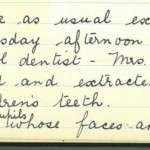 as usual ex
sday afternoon
dentist - Mrs.
and extracte
ren's teeth.
pupils
whose faces an